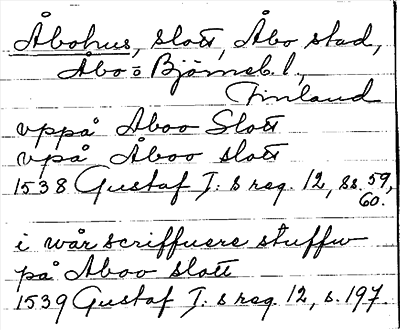 Åbohus, slott, Åbo stad,
Åbo o Björneb. l,
Finland
vppå Åboo Slott
vpå Åboo slott
1538 Gustaf I: s reg. 12, ss. 59,
60.
i wår scriffuere stuffw
på Aboo slott
1539 Gustaf I: s reg. 12, s. 197.